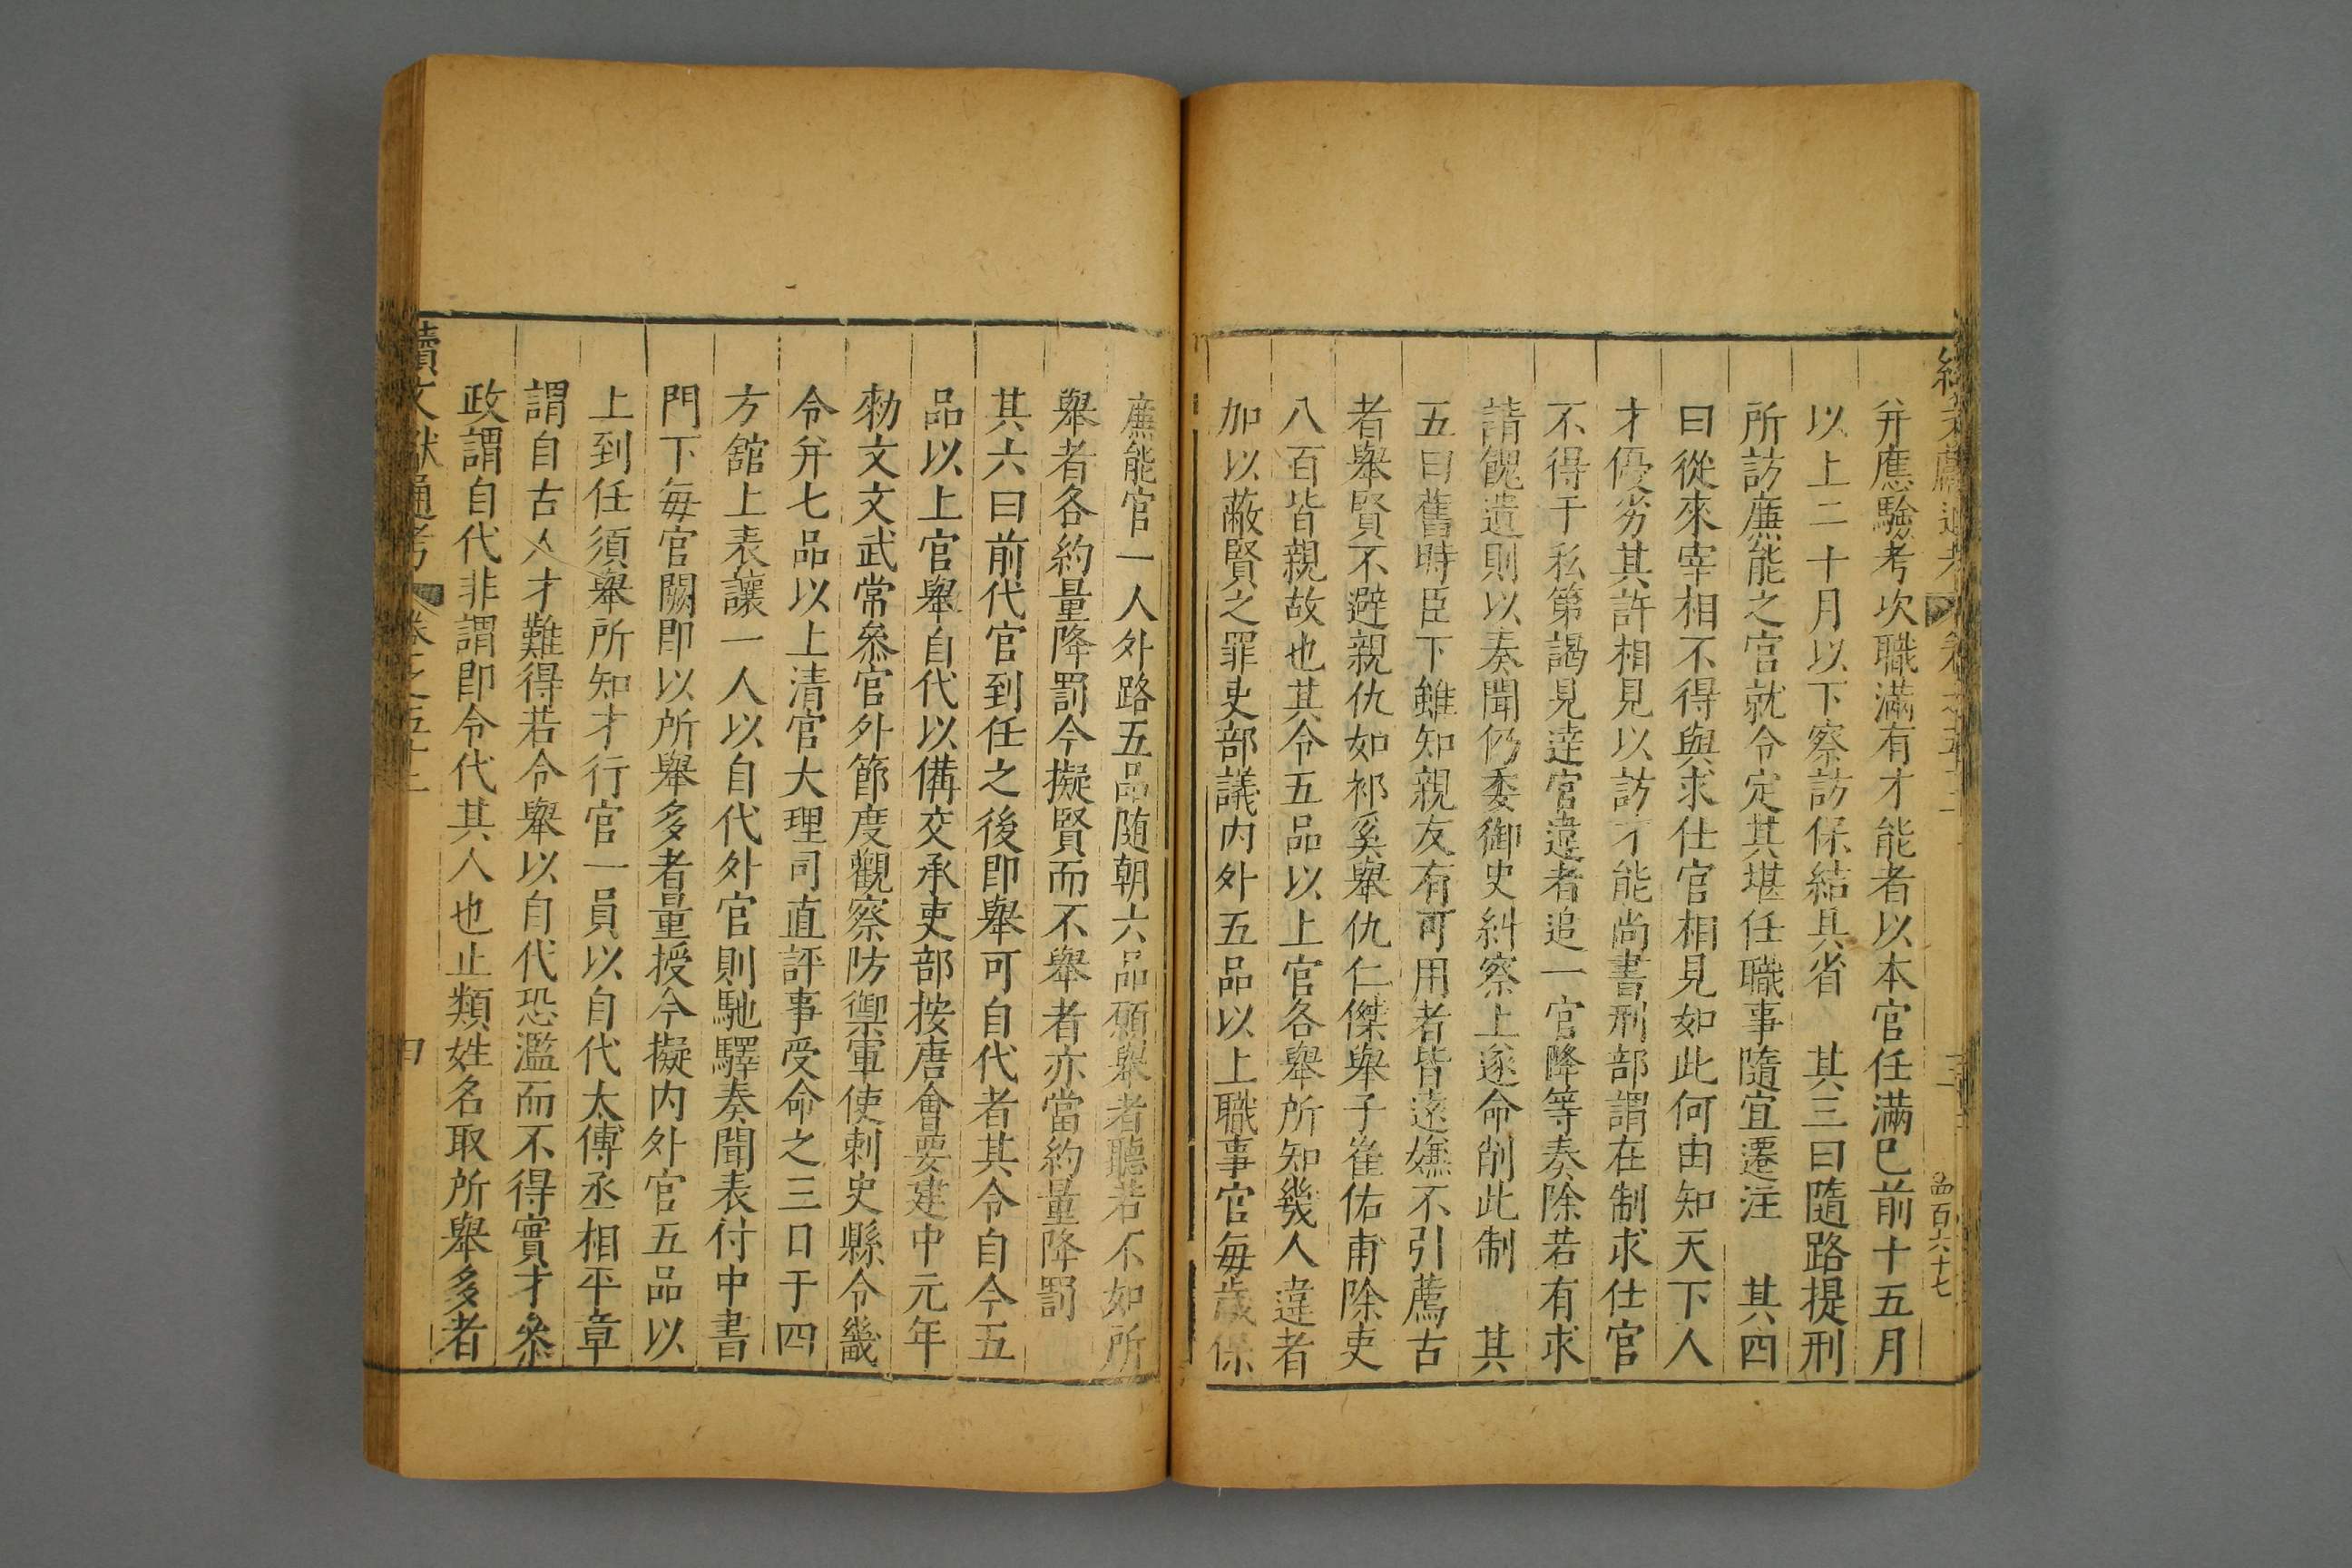 弁應驗考次職滿有才能者以本官任滿巳前十五月
以上二十月以下察訪保結具省　其三曰隨路提刑
所訪廉能之官就令定其堪任職事隨宜遷注　其四
曰從來宰相不得與求仕官相見如此何由知天下人
才優劣其許相見以訪才能尚書刑部謂在制求仕官
不得于私第謁見達官違者追一官降等奏除若有求
請餽遺則以奏聞仍委御史糾察上遂命削此制　其
五曰舊時臣下雖知親友有可用者皆遠嫌不引薦古
者舉賢不避親仇如祁奚舉仇仁傑舉子崔佑甫除吏
八百皆親故也其令五品以上官各舉所知幾人違者
加以蔽賢之罪吏部議内外五品以上職事官每歲保
廉能官一人外路五品隨朝六品願舉者聽若不如所
舉者各約量降罰今擬賢而不舉者亦當約量降罰
其六曰前代官到任之後即舉可自代者其令自今五
品以上官舉自代以備交承吏部按唐會要建中元年
勑文文武常叅官外節度觀察防禦軍使刺史縣令畿
令弁七品以上清官大理司直評事受命之三日于四
方舘上表讓一人以自代外官則馳驛奏聞表付中書
門下每官闕即以所舉多者量授今擬内外官五品以
上到任須舉所知才行官一員以自代太傅丞相平章
謂自古人才難得若令舉以自代恐濫而不得實才叅
政謂自代非謂即令代其人也止類姓名取所舉多者
續文獻通考　卷之五十